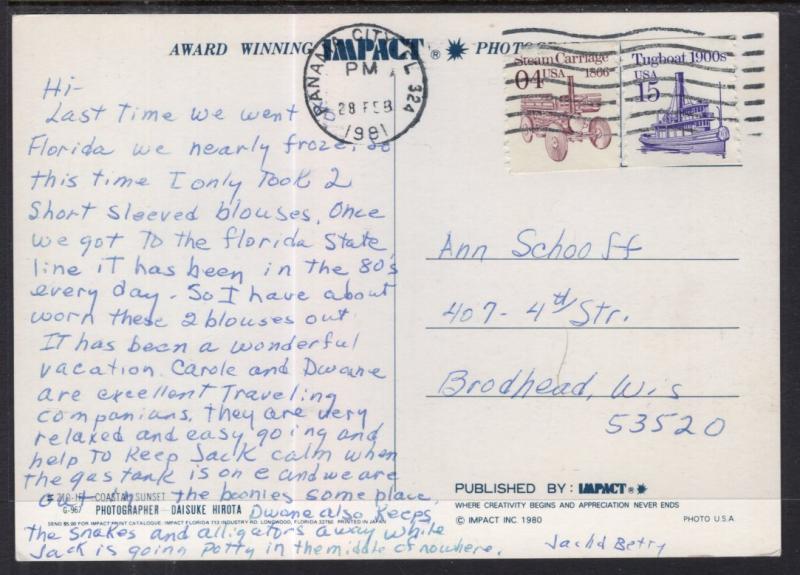 AWARD WINNING IMPACT PHOTO
PANAMA CITY FL 324
PM
28 FEB
1981
Steam Carriage
04 USA 1866
Tugboat 1900s
USA
15
Hi-
Last Time we went to
Florida we nearly froze, so
this time I only Took 2
Short sleeved blouses. Once
we got To the florida State
line iT has been in the 80's
every day - So I have about
worn these 2 blouses out
IT has been a wonderful
vacation. Carole and Dwane
are excellent Traveling
companians. They are very
relaxed and easy going and
help To Keep Jack calm when
the gas tank is on e and we are
out in the boonies some place,
Dwane also Keeps
the snakes and alligators away while
Jack is going potty in the middle of nowhere.
Jack & Betty
COASTAL SUNSET
G-967 PHOTOGRAPHER — DAISUKE HIROTA
SEND $5.00 FOR IMPACT PRINT CATALOGUE. IMPACT FLORIDA 713 INDUSTRY RD. LONGWOOD, FLORIDA 32750 PRINTED IN JAPAN
Ann Schooff
407 - 4th Str.
Brodhead, Wis
53520
PUBLISHED BY: IMPACT
WHERE CREATIVITY BEGINS AND APPRECIATION NEVER ENDS
© IMPACT INC. 1980
PHOTO U.S.A